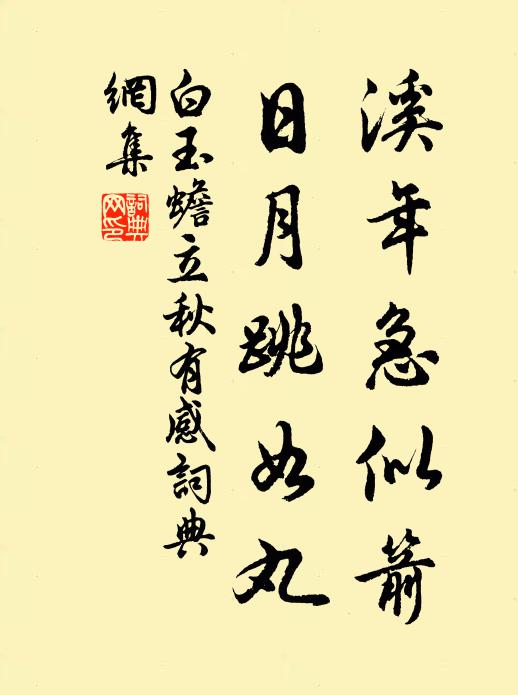 溪年急似箭
日月跳如丸
白玉蟾立秋有感詞典
網集
詞典网印